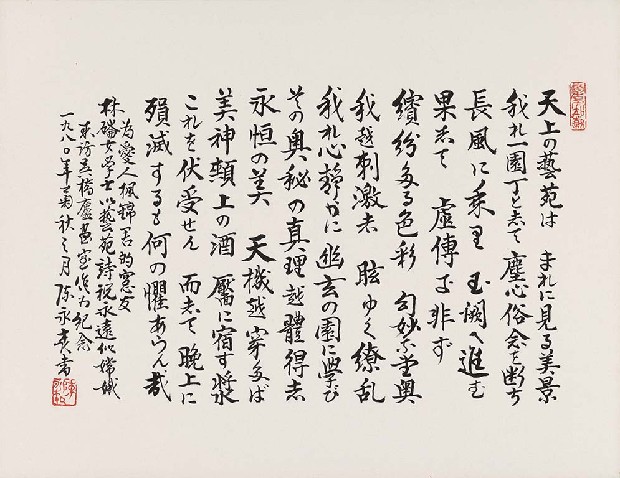 天上の藝苑は まれに見る美景
我れ一園丁として 塵心俗念を断ち
長風に乘り 玉闕へ進む
果して 虚傳に非ず
繽紛たる色彩 幻妙な玄奥
我を刺激し 眩ゆく繚乱
我れ心靜かに 幽玄の園に學び
その奥秘の真理を體得し
永恒の美 天機を穿たば
美神頬上の酒靨に宿す漿
これを伏受せん 而して晩上に
殞滅するも何の懼あらん哉
為愛人楓錦君的窓友
林 女學士以藝苑詩祝永遠似嫦娥
來訪吾橋廬畫室作為紀念
一九八〇年 菊秋之月 陈永 書